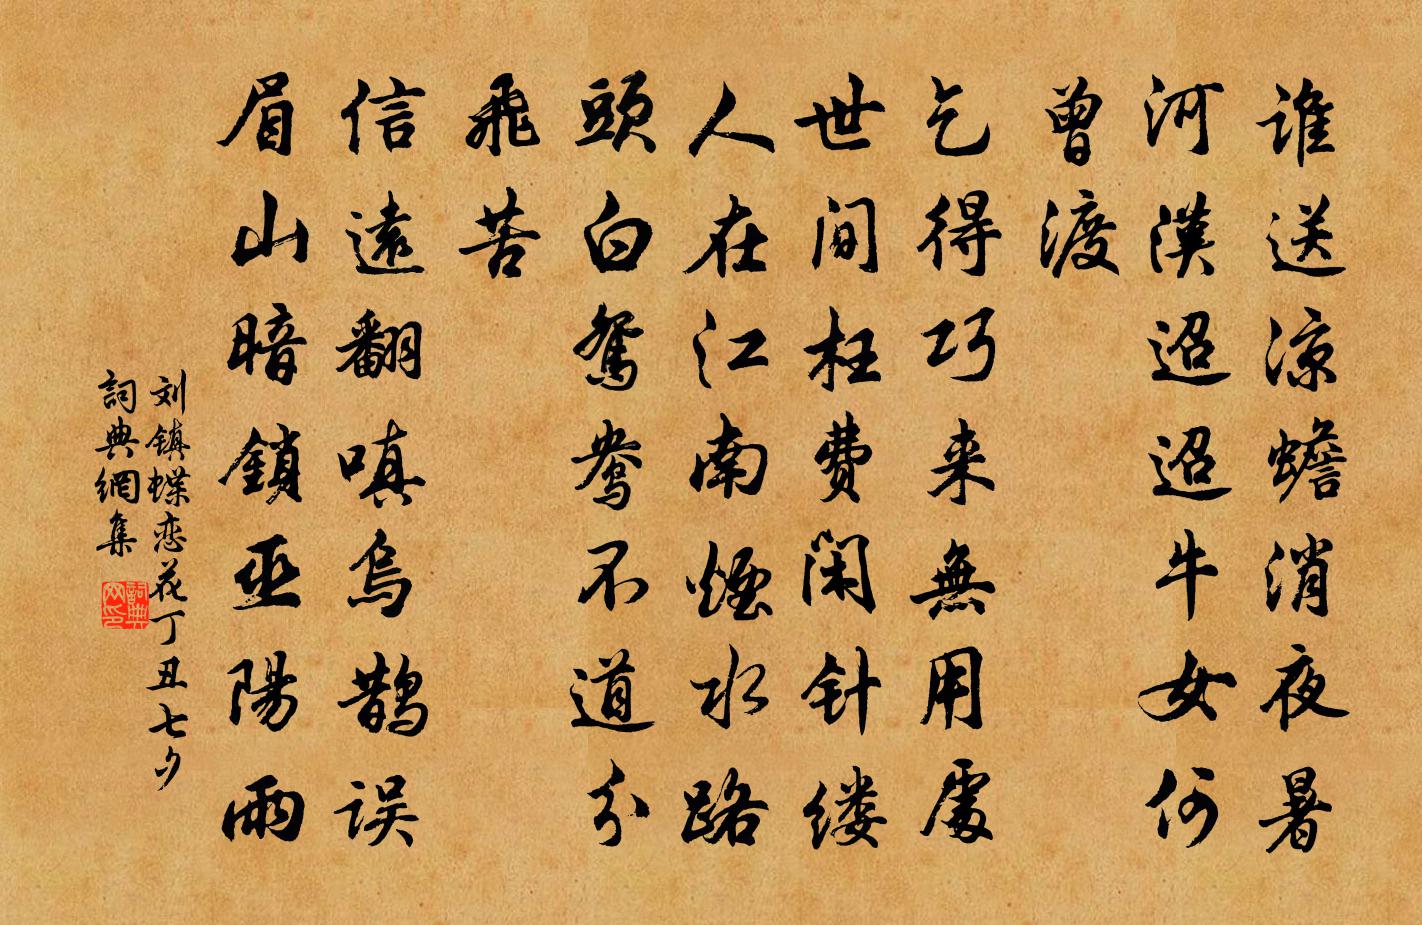 谁送凉蟾消夜暑
河漢迢迢牛女何
曾渡
乞得巧来無用處
世间枉费闲针缕
人在江南煙水路
頭白鴛鴦不道分
飛苦
信遠翻嗔烏鵲误
眉山暗鎖巫陽雨
刘鎮蝶恋花丁丑七夕
詞典網集
詞典网印